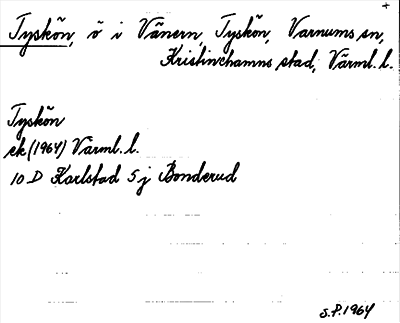 +
Tyskön, ö i Vänern, Tyskön, Varnums sn,
Kristinehamns stad, Värml. l.
Tyskön
ek (1964) Värml. l.
10 D Karlstad 5 j Bonderud
S.P. 1964